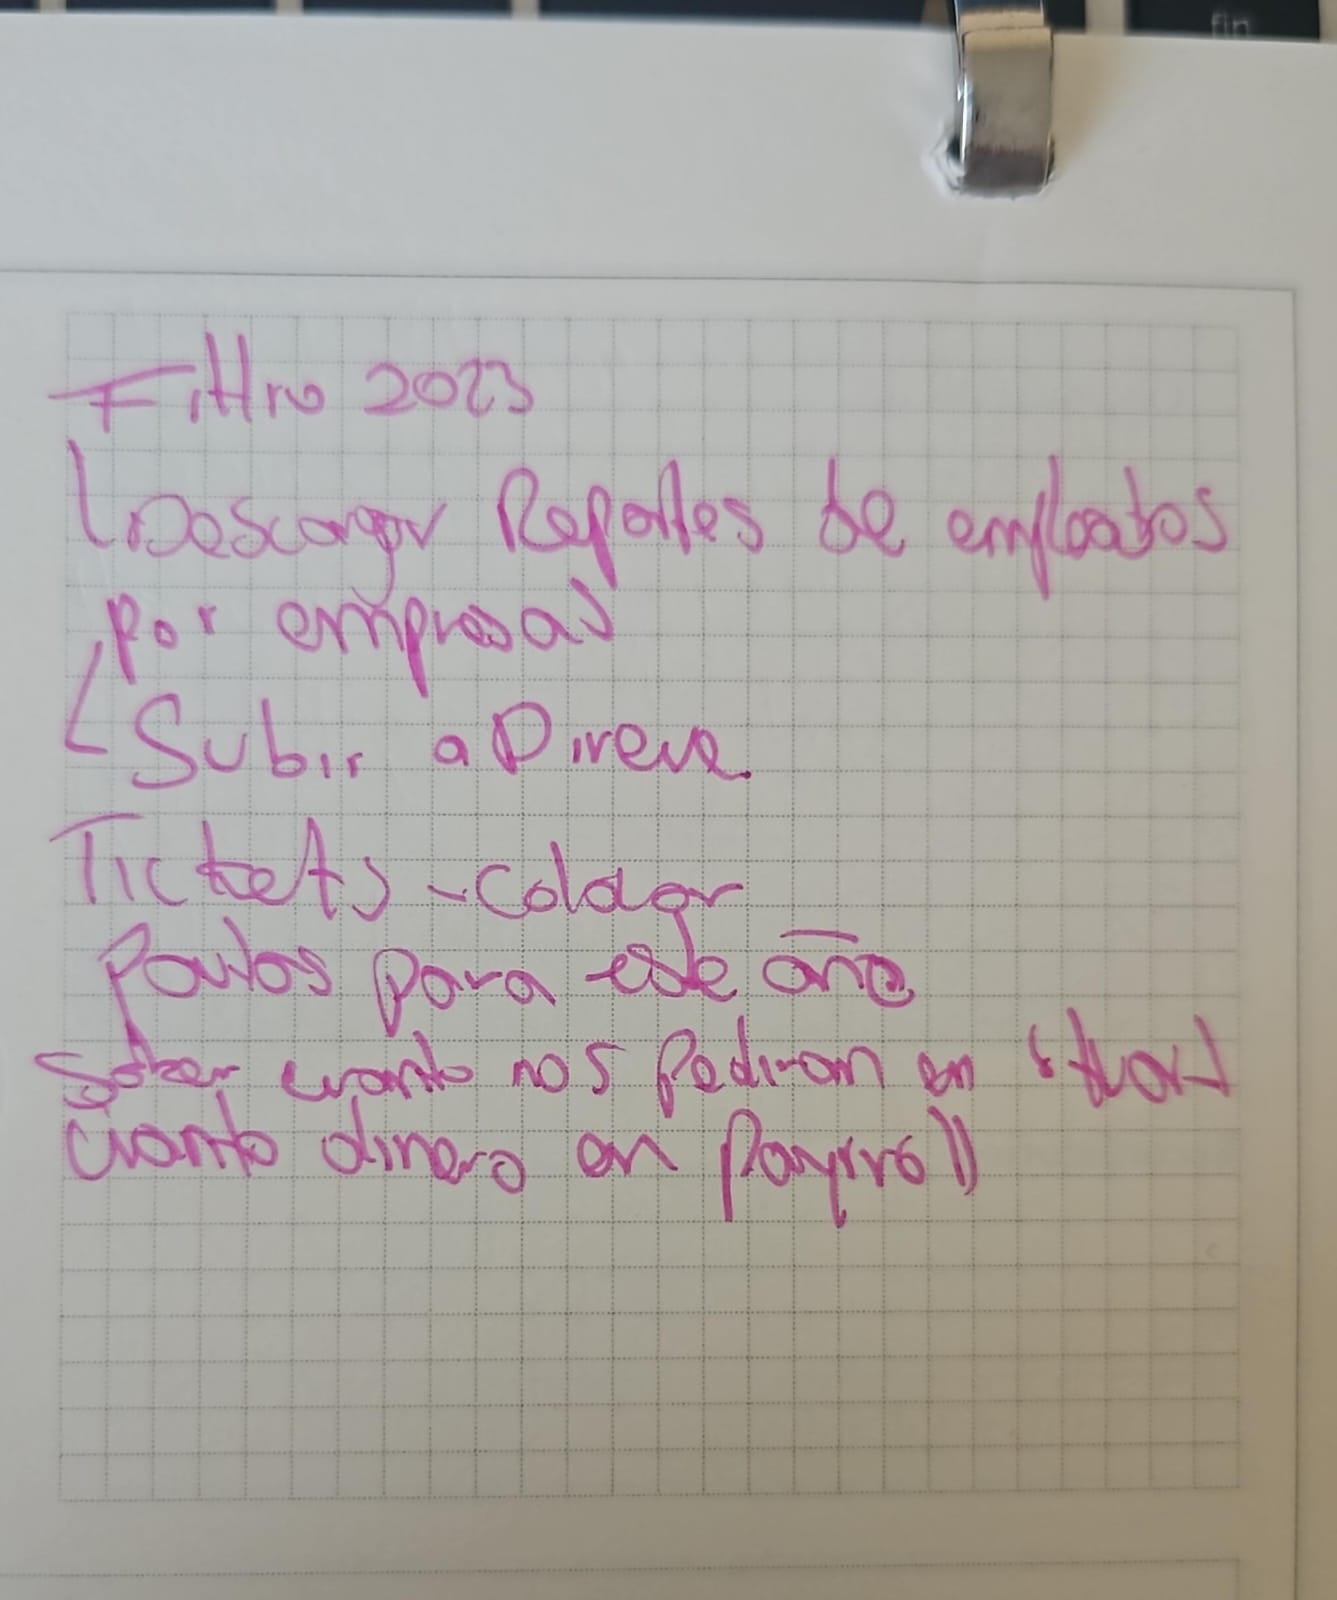 fin
Filtro 2023
Descargar Reportes de empleados
por empresas
Subir a Direve
Tickets - Colagar
Pautas para este año
Saber cuanto nos pediran en
cuanto dinero en Payrroll